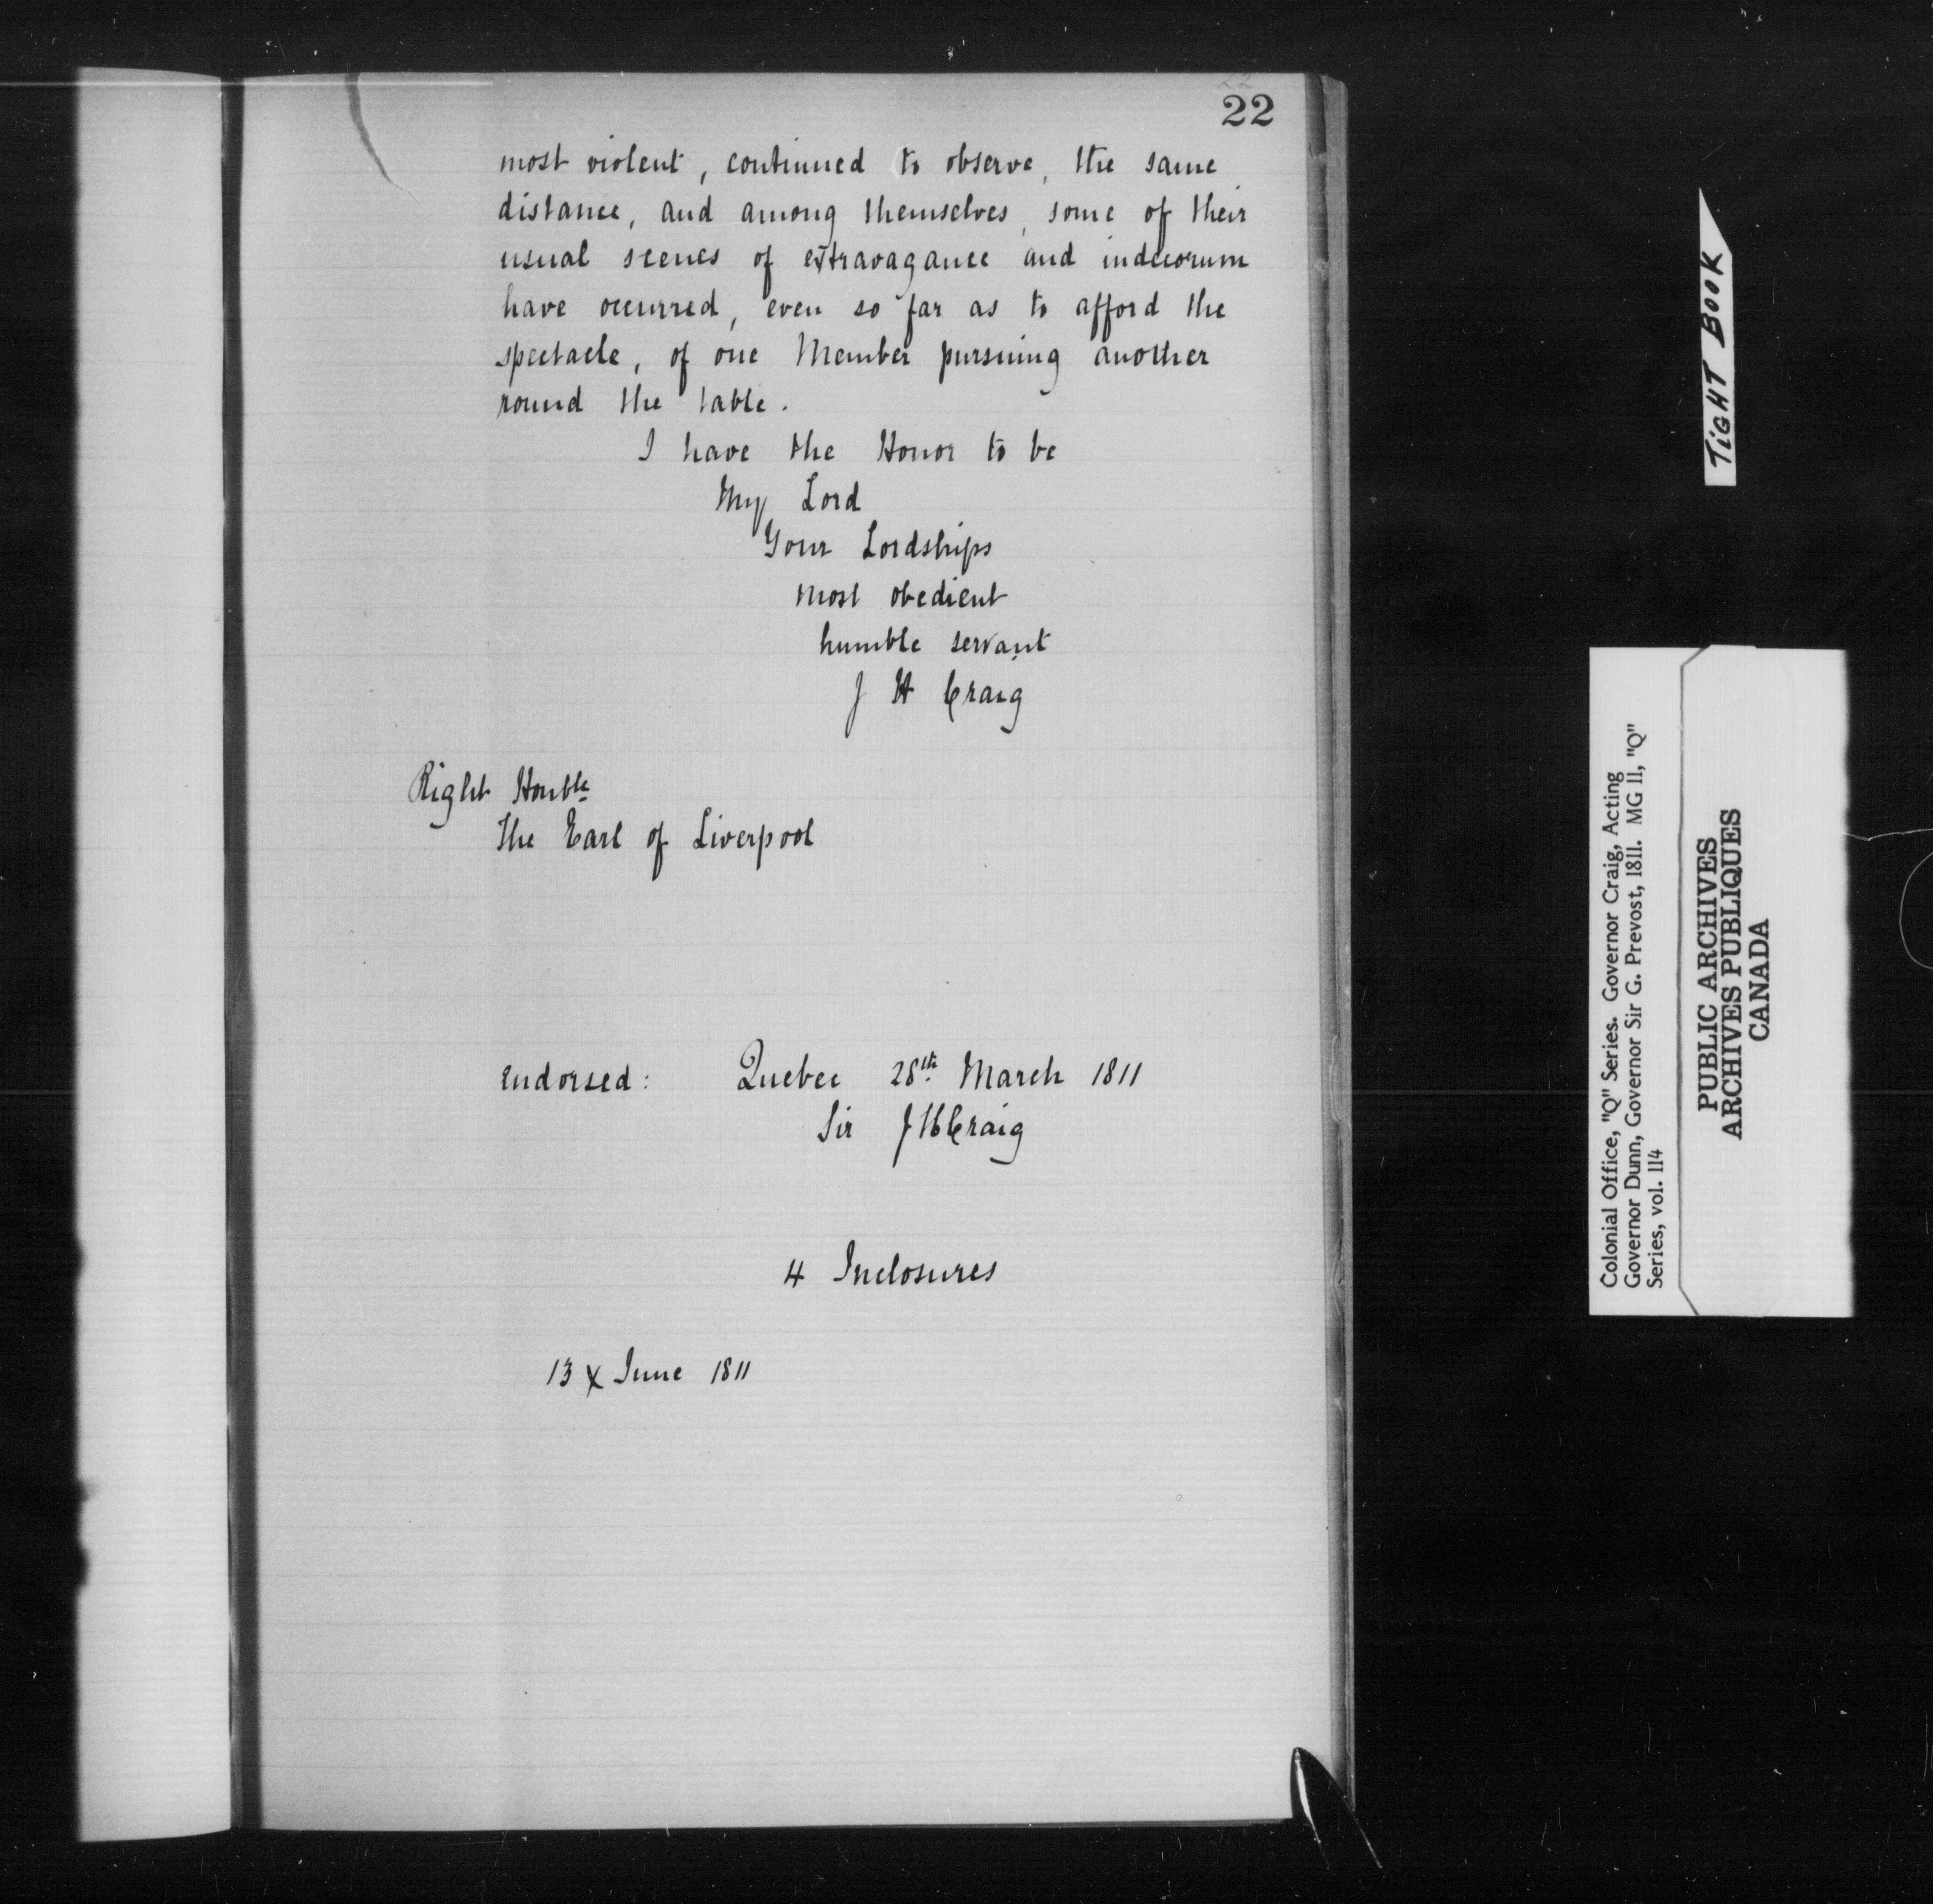 22
22
most violent, continued to observe, the same
distance, and among themselves, some of their
usual scenes of extravagance and indecorum
have occurred, even so far as to afford the
spectacle, of one Member pursuing another
round the table.
I have the Honor to be
My Lord
Your Lordships
most obedient
humble servant
J H Craig
Right Honble
The Earl of Liverpool
Endorsed: Quebec 28th March 1811
Sir J H Craig
4 Inclosures
13 x June 1811
TIGHT BOOK
Colonial Office, "Q" Series. Governor Craig, Acting
Governor Dunn, Governor Sir G. Prevost, 1811. MG 11, "Q"
Series, vol. 114
PUBLIC ARCHIVES
ARCHIVES PUBLIQUES
CANADA